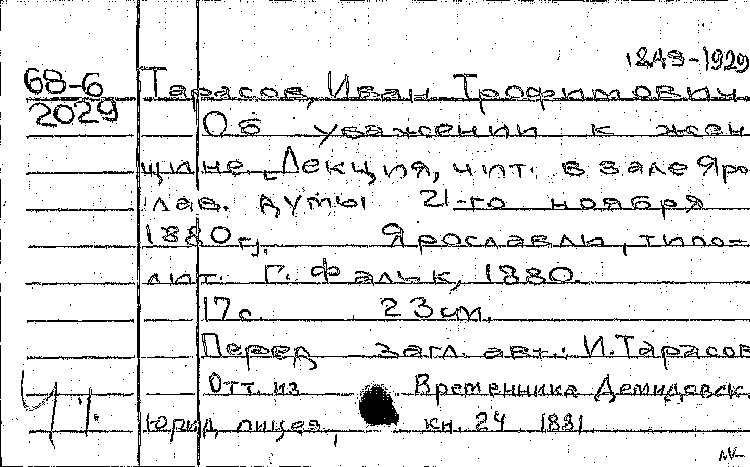 1849-1929
68-6
2029
Тарасов, Иван Трофимович.
Об уважении к жен
щине. Лекция, чит. в зале Яро
слав. думы 21-го ноября
1880 г.
Ярославль, типо-
лит. Г. Фальк, 1880.
17с. 23 см.
Перед загл. авт.: И. Тарасов
Отт. из Временника Демидовск.
юрид. лицея, кн. 24 1881